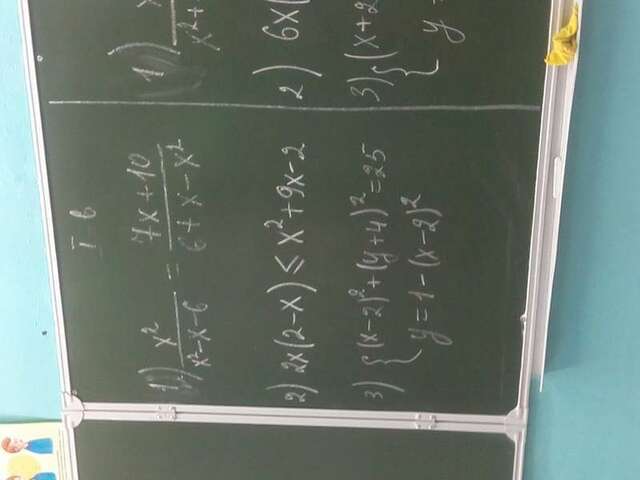 I - в
1) x²/(x²-x-6) = (7x+10)/(6+x-x²)
2) 2x(2-x) ≤ x²+9x-2
3) { (x-2)²+(y+4)²=25
y=1-(x-2)²
1)
2) 6x(
3) { (x+2
y=